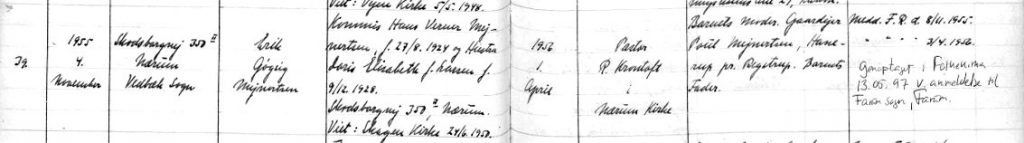 Viet: Vejen Kirke 5/5. 1948.
Kommis Hans Verner Mej-
nertsen, f. 27/8. 1924 og Hustru
Doris Elisabeth f. Larsen f.
9/12. 1928.
Skodsborgvej 350 II, Nærum.
Viet: Skagen Kirke 24/6. 1950.
39.
1955
4.
November
Skodsborgvej 350 II
Nærum
Vedbæk Sogn
Erik
Mejnertsen
1956
1.
April
Pastor
R. Krontoft
i
Nærum Kirke
Barnets Moder. Gaardejer
Poul Mejnertsen, Hane-
rup pr. Regstrup. Barnets
Fader.
Medd. F.R. d. 8/11. 1955.
" " " 3/4. 1956.
Genoptaget i Folkekirken
13.05.97 v. anmeldelse til
Farum sogn, Farum.